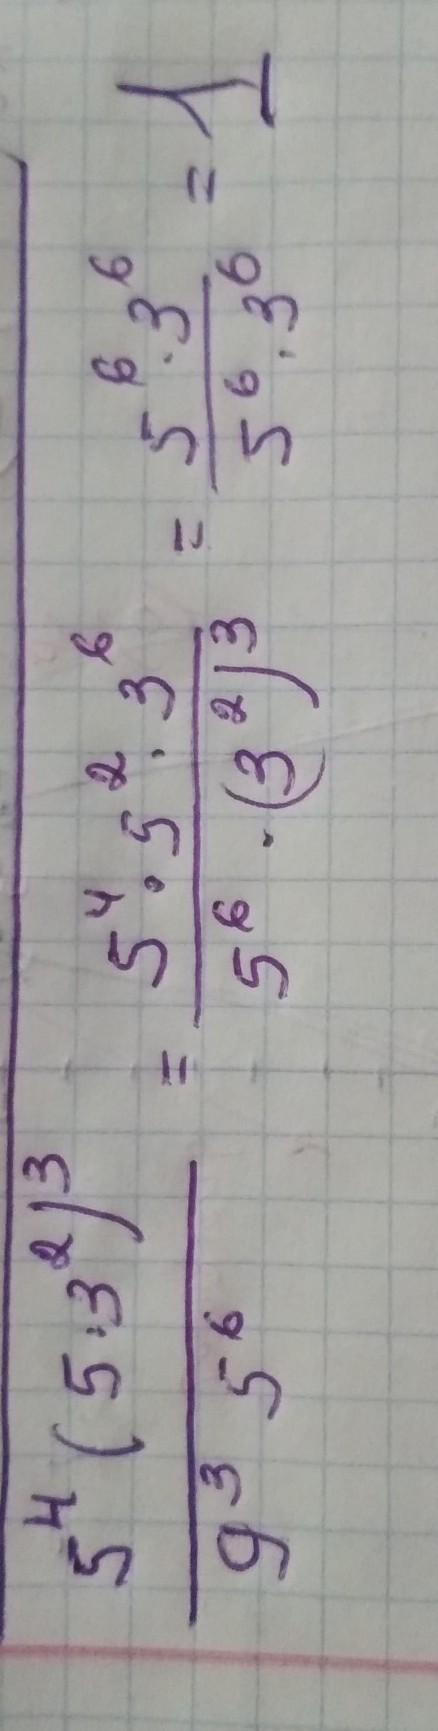 5⁴(5·3²)³ / 9³ 5⁶ = 5⁴·5²·3⁶ / 5⁶·(3²)³ = 5⁶·3⁶ / 5⁶·3⁶ = 1